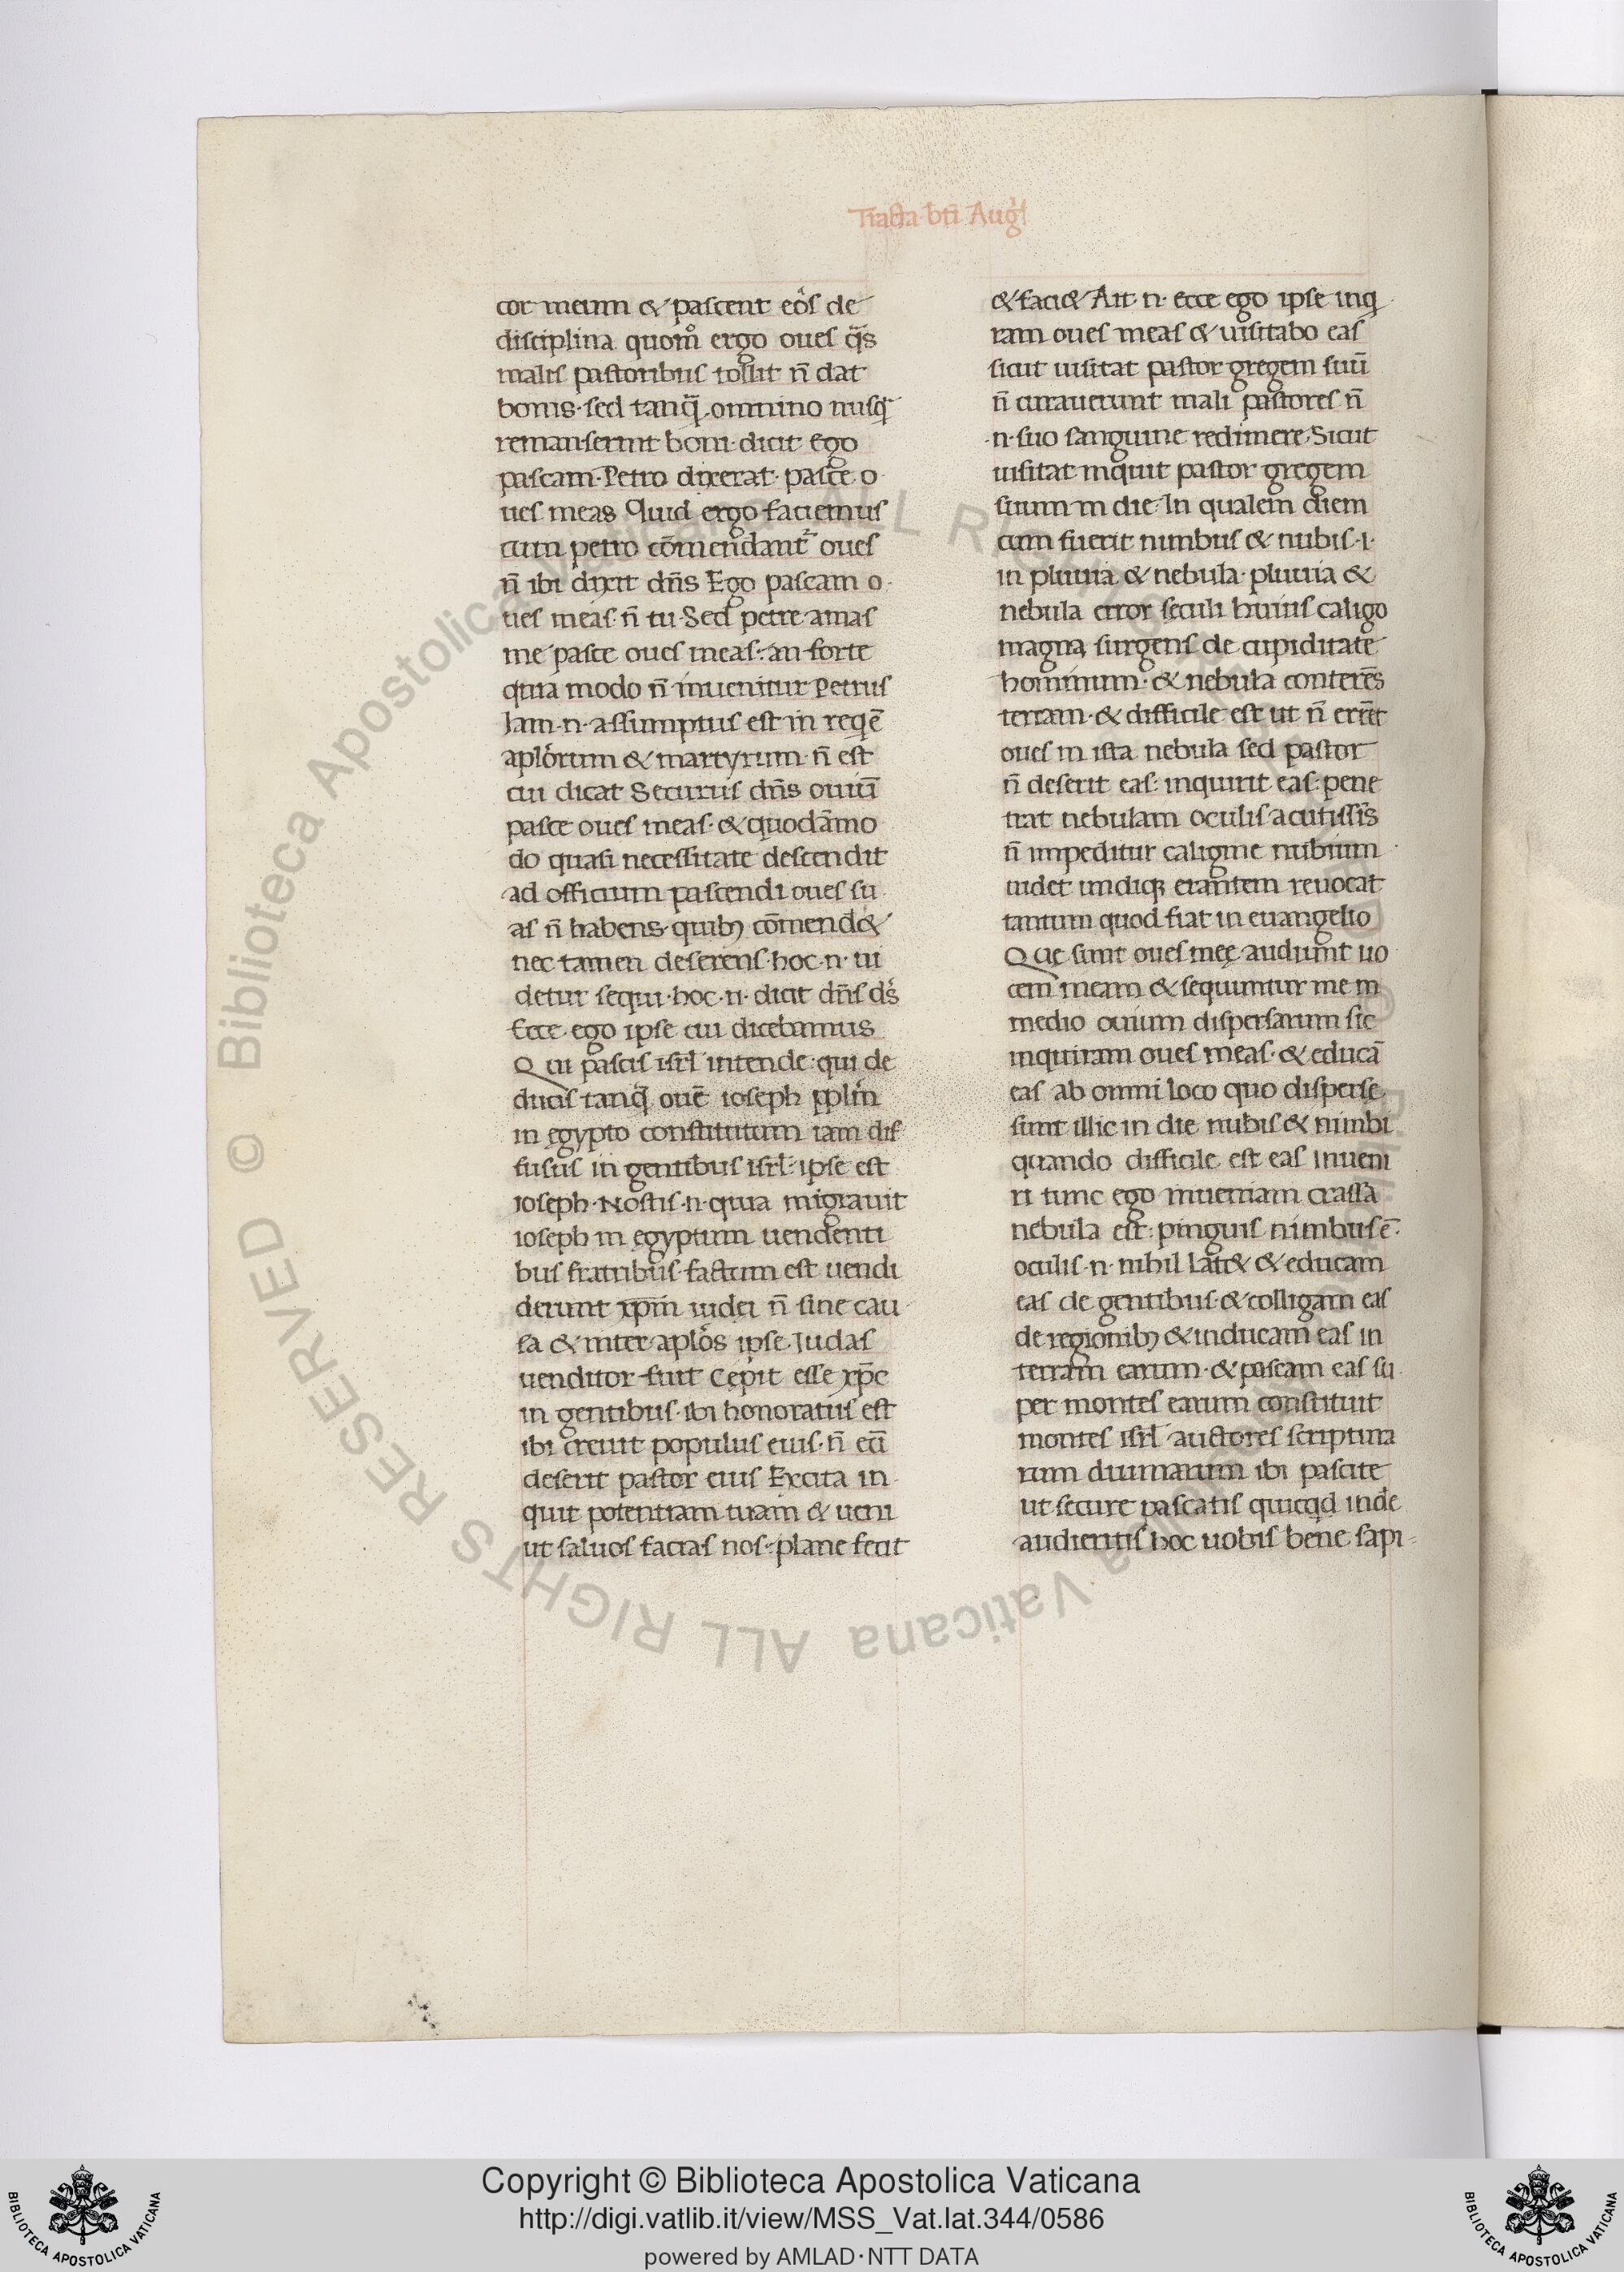 Tracta bti Augˡ
cor meum & pascent eos de
disciplina quom̊ ergo oues q̃s
malis pastoribus tollit n̄ dat
bonis · sed tanq̃ omnino nusq̃
remanserint boni · dicit Ego
pascam · Petro dixerat · pasce o
ues meas Quid ergo faciemus
cum petro cōmendant᷑ oues
n̄ ibi dixit dn̄s Ego pascam o
ues meas · n̄ tu · Sed petre amas
me pasce oues meas : an forte
quia modo n̄ inuenitur Petrus
Iam · n · assumptus est in reqē
aplorum & martyrum · n̄ est
cui dicat Securus dn̄s ouiū
pasce oues meas · & quodāmo
do quasi necessitate descendit
ad officium pascendi oues su
as n̄ habens quibꝫ cōmend&
nec tamen deserens · hoc · n · ui
detur sequi · hoc · n · dicit dn̄s ds̄
Ecce ego ipse cui dicebamus
Qui pascis isrl̄ intende · qui de
ducis tanq̃ ouē ioseph pplm̄
in egypto constitutum iam dif
fusus in gentibus isrl̄ · ipse est
ioseph · Nostis · n · quia migrauit
ioseph in egyptum uendenti
bus fratribus · factum est uendi
derunt xp̄m iudei n̄ sine cau
sa & inter aplōs ipse Iudas
uenditor fuit Cepit esse xp̄c
in gentibus · ibi honoratus est
ibi creuit populus eius · n̄ eū
deserit pastor eius Excita in
quit potentiam tuam & ueni
ut saluos facias nos · plane fecit
& faci& Ait · n · ecce ego ipse inq
ram oues meas & uisitabo eas
sicut uisitat pastor gregem suū
n̄ curauerunt mali pastores n̄
· n · suo sanguine redimere · Sicut
uisitat inquit pastor gregem
suum in die · In qualem diem
cum fuerit nimbus & nubis · i ·
in pluuia & nebula · pluuia &
nebula error seculi huius caligo
magna surgens de cupiditate
hominum · & nebula conterēs
terram · & difficile est ut n̄ errēt
oues in ista nebula sed pastor
n̄ deserit eas : inquirit eas · pene
trat nebulam oculis acutissis̄
n̄ impeditur caligine nubium
uidet undiqꝫ erantem reuocat
tantum quod fiat in euangelio
Que sunt oues mee audiunt uo
cem meam & sequuntur me in
medio ouium dispersarum sic
inquiram oues meas · & educā
eas ab omni loco quo disperse
sunt illic in die nubis & nimbi
quando difficile est eas inueni
ri tunc ego inueniam crassa
nebula est : pinguis nimbus ē ·
oculis · n · nihil lat& & educam
eas de gentibus · & colligam eas
de regionibꝫ & inducam eas in
terram earum · & pascam eas su
per montes earum constituit
montes isrl̄ auctores scriptura
rum diuinarum ibi pascite
ut secure pascatis quicqd inde
audieritis hoc uobis bene sapi
Copyright © Biblioteca Apostolica Vaticana
http://digi.vatlib.it/view/MSS_Vat.lat.344/0586
powered by AMLAD·NTT DATA
BIBLIOTECA APOSTOLICA VATICANA
BIBLIOTECA APOSTOLICA VATICANA